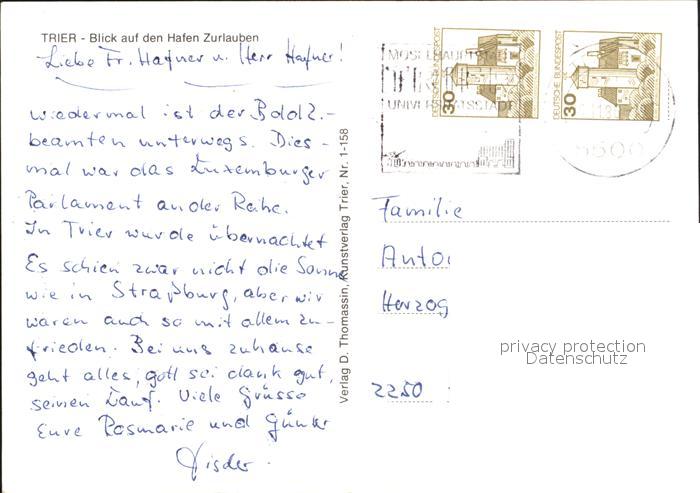 TRIER - Blick auf den Hafen Zurlauben
Liebe Fr. Hafner u. Herr Hafner!
wiedermal ist der
beamten unterwegs. Dies-
mal war das Luxemburger
Parlament an der Reihe.
In Trier wurde übernachtet
Es schien zwar nicht die Sonne
wie in Straßburg, aber wir
waren auch so mit allem zu-
frieden. Bei uns zuhause
geht alles, gott sei dank gut,
seinen Lauf. Viele Grüsse
Eure Rosmarie und Günter
Verlag D. Thomassin, Kunstverlag Trier, Nr. 1-158
MOSELHAUPTSTADT
UNIVERSITÄTSSTADT
30
DEUTSCHE BUNDESPOST
30
DEUTSCHE BUNDESPOST
5500
Familie
Anto
Herzog
privacy protection
Datenschutz
2250